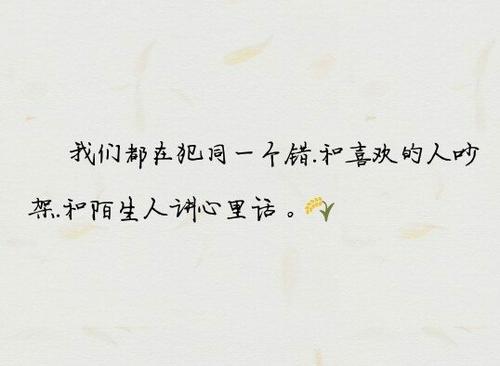 我们都在犯同一个错.和喜欢的人吵
架.和陌生人讲心里话。